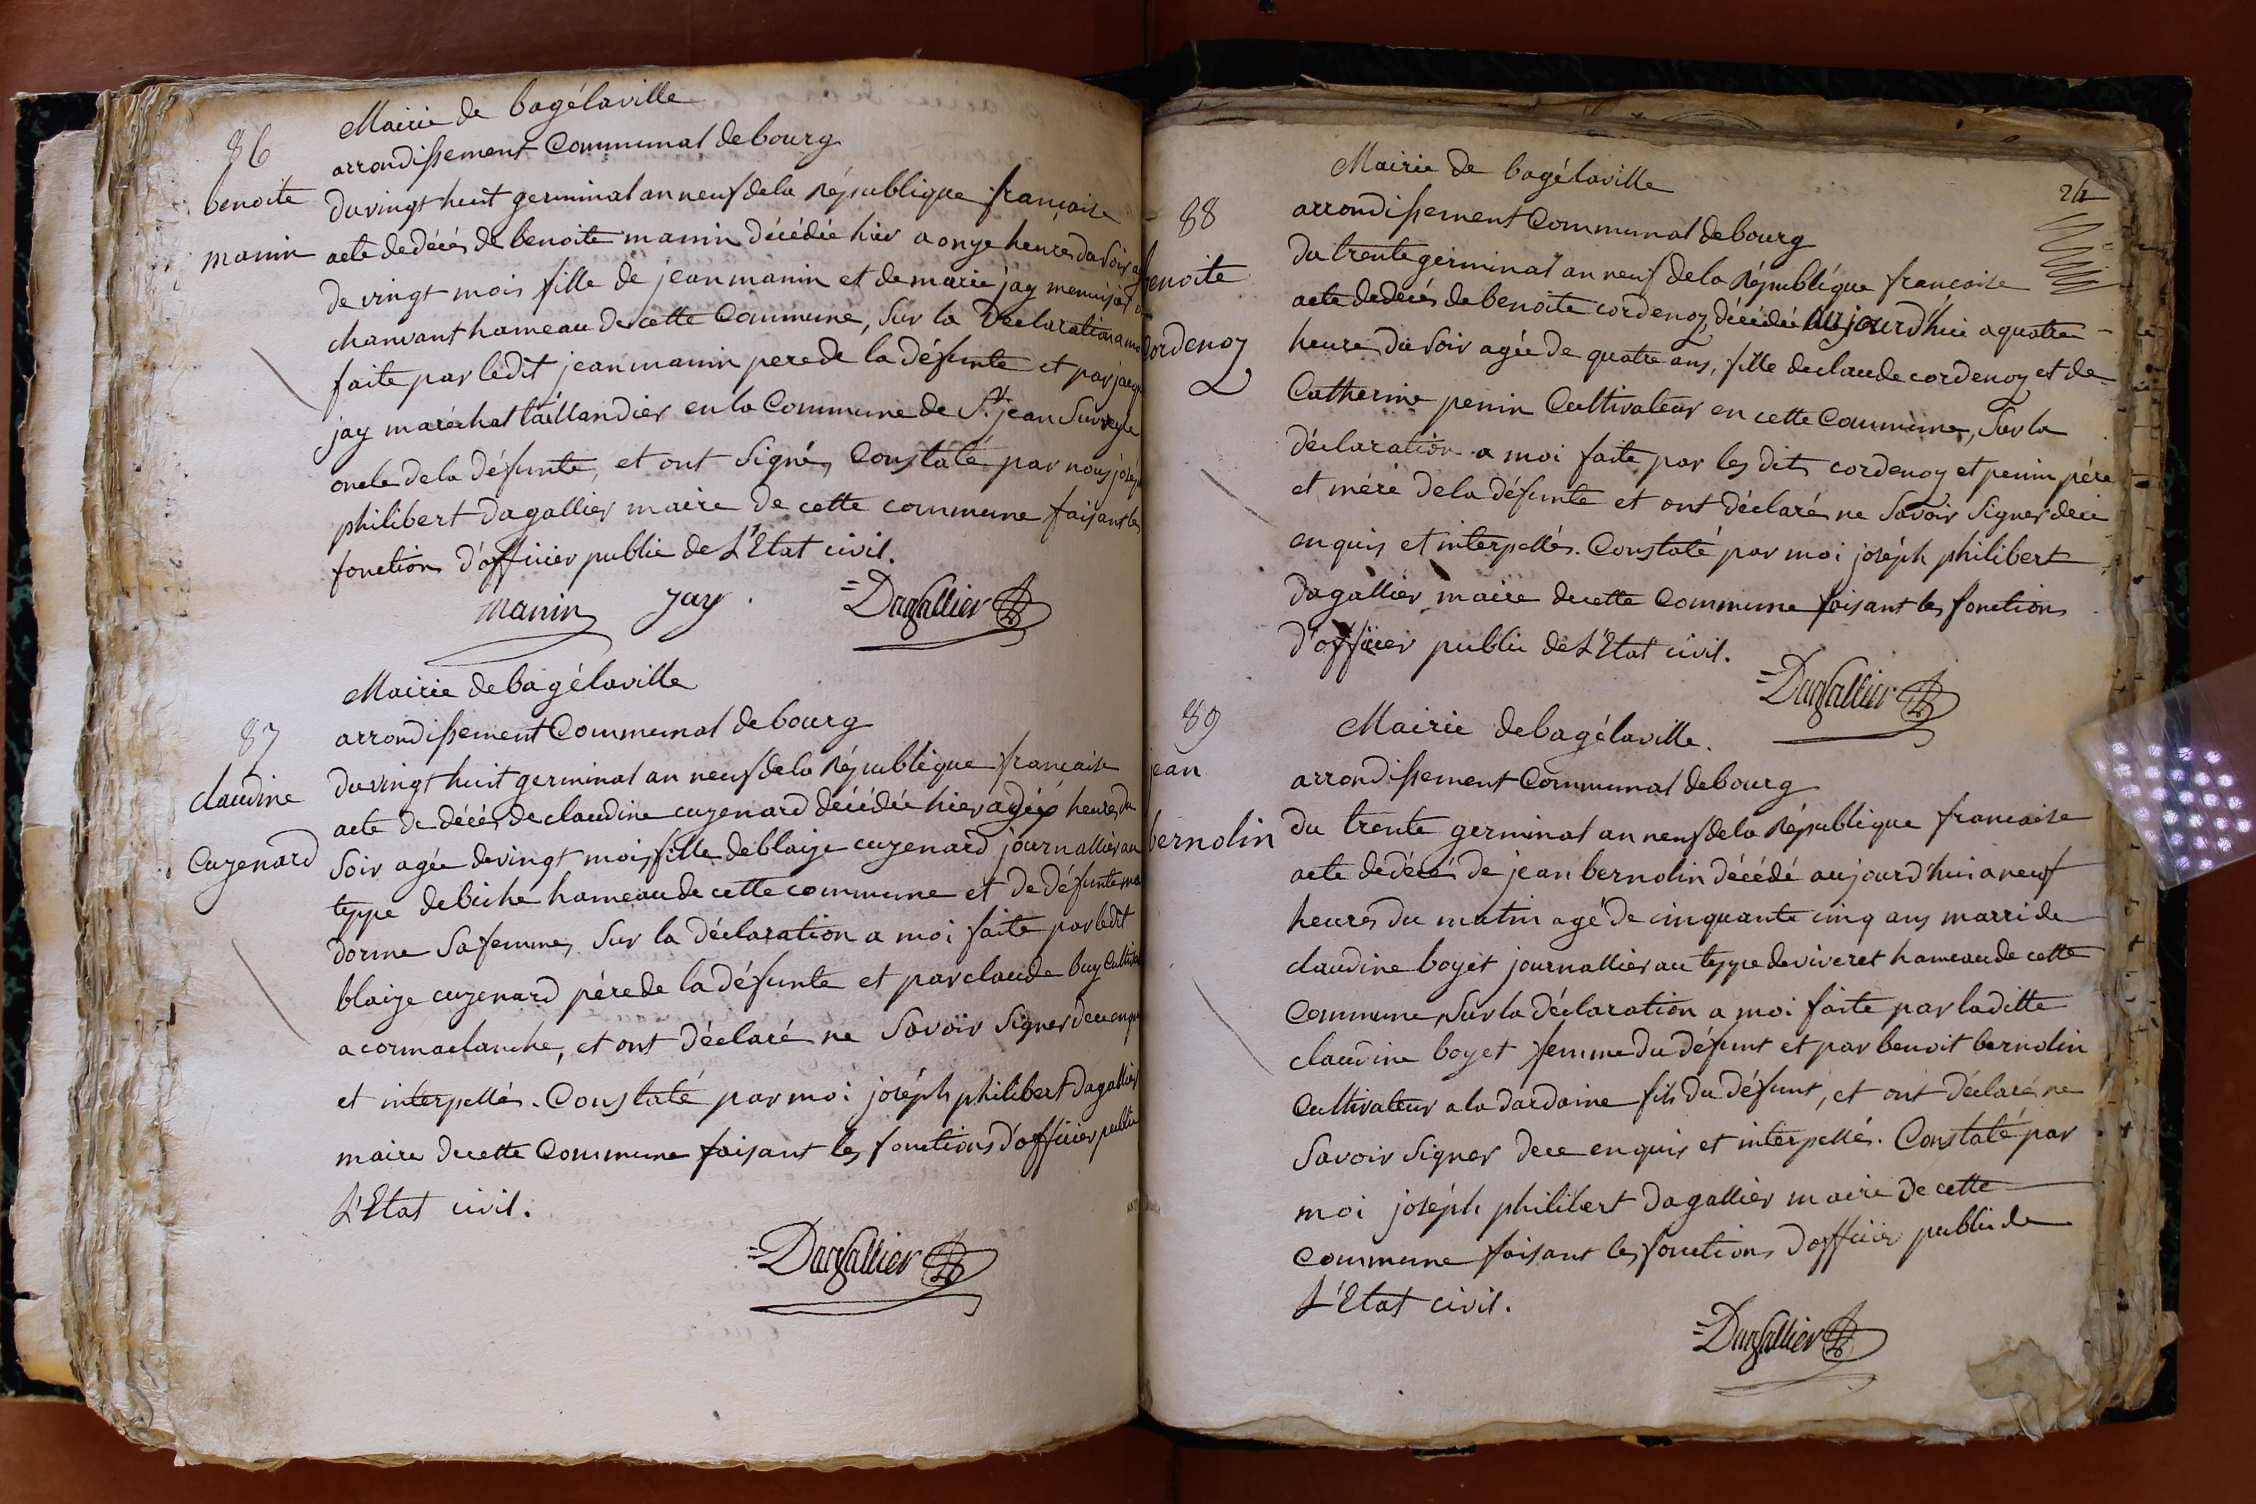 86
benoite
manin
Mairie de bagélaville
arrondissement Communal de bourg
du vingt huit germinal an neuf de la République francaise
acte de décés de benoite manin décédée hier a onze heures du soir
de vingt mois fille de jean manin et de marie jay
chanvant hameau de cette Commune, sur la Declaration a
faite par ledit jean manin pere de la défunte et par
jay maréchal taillandier en la Commune de St jean sur
oncle de la défunte, et ont signé, Constaté par nous
philibert dagallier maire de cette commune faisant les
fonctions d'officier public de L'Etat civil.
manin jay. =Dagallier
87
claudine
Cuzenard
Mairie de bagélaville
arrondissement Communal de bourg
du vingt huit germinal an neuf de la République francaise
acte de décés de claudine cuzenard décédée hier a heures du
soir agée de vingt mois, fille de blaize cuzenard journallier au
typpe de biche hameau de cette commune et de défunte
dorme sa femme, sur la déclaration a moi faite par ledit
blaize cuzenard pére de la défunte et par claude buy
a cormaclanche, et ont déclaré ne savoir signer de ce
et interpellés. Constaté par moi joséph philibert dagallier
maire de cette Commune faisant les fonctions d'officier public
L'Etat civil.
=Dagallier
24
88
benoite
Cordenoz
Mairie de bagélaville
arrondissement Communal de bourg
du trente germinal an neuf de la République francaise
acte de décés de benoite cordenoz, décédée aujourd'hui a quatre
heure du soir agée de quatre ans, fille de claude cordenoz et de
Catherine penin Cultivateur en cette Commune, sur la
déclaration a moi faite par les dits cordenoz et penin pére
et mére de la défunte et ont déclaré ne savoir signer de ce
enquis et interpellés. Constaté par moi joséph philibert
dagallier maire de cette Commune faisant les fonctions
d'officier public de L'Etat civil.
=Dagallier
89
jean
bernolin
Mairie de bagélaville.
arrondissement Communal de bourg
du trente germinal an neuf de la République francaise
acte de décés de jean bernolin décédé aujourd'hui a neuf
heures du matin agé de cinquante cinq ans marri de
claudine boyet journallier au typpe de viveret hameau de cette
Commune, sur la déclaration a moi faite par laditte
claudine boyet femme du défunt et par benoit bernolin
Cultivateur a la dardaine fils du défunt, et ont déclaré ne
savoir signer de ce enquis et interpellé. Constaté par
moi joséph philibert dagallier maire de cette
commune faisant les fonctions d'officier public de
L'Etat civil.
=Dagallier